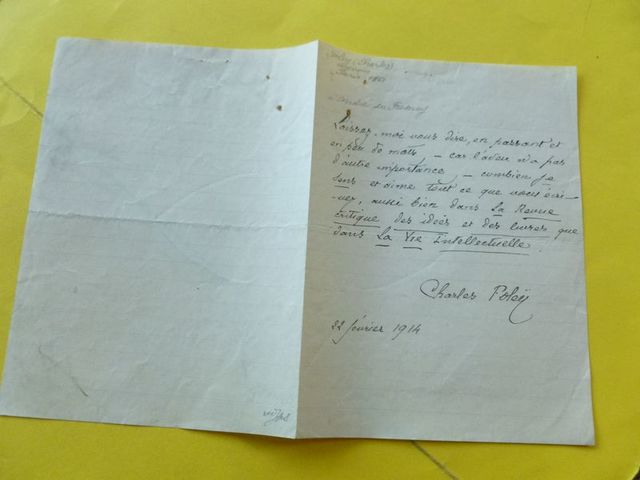 Laissez-moi vous dire, en passant et
en peu de mots – car l'aveu n'a pas
d'autre importance, – combien je
sens et aime tout ce que vous écri-
vez, aussi bien dans La Revue
critique des idées et des livres que
dans La Vie Intellectuelle.
Charles Foleÿ
22 février 1914